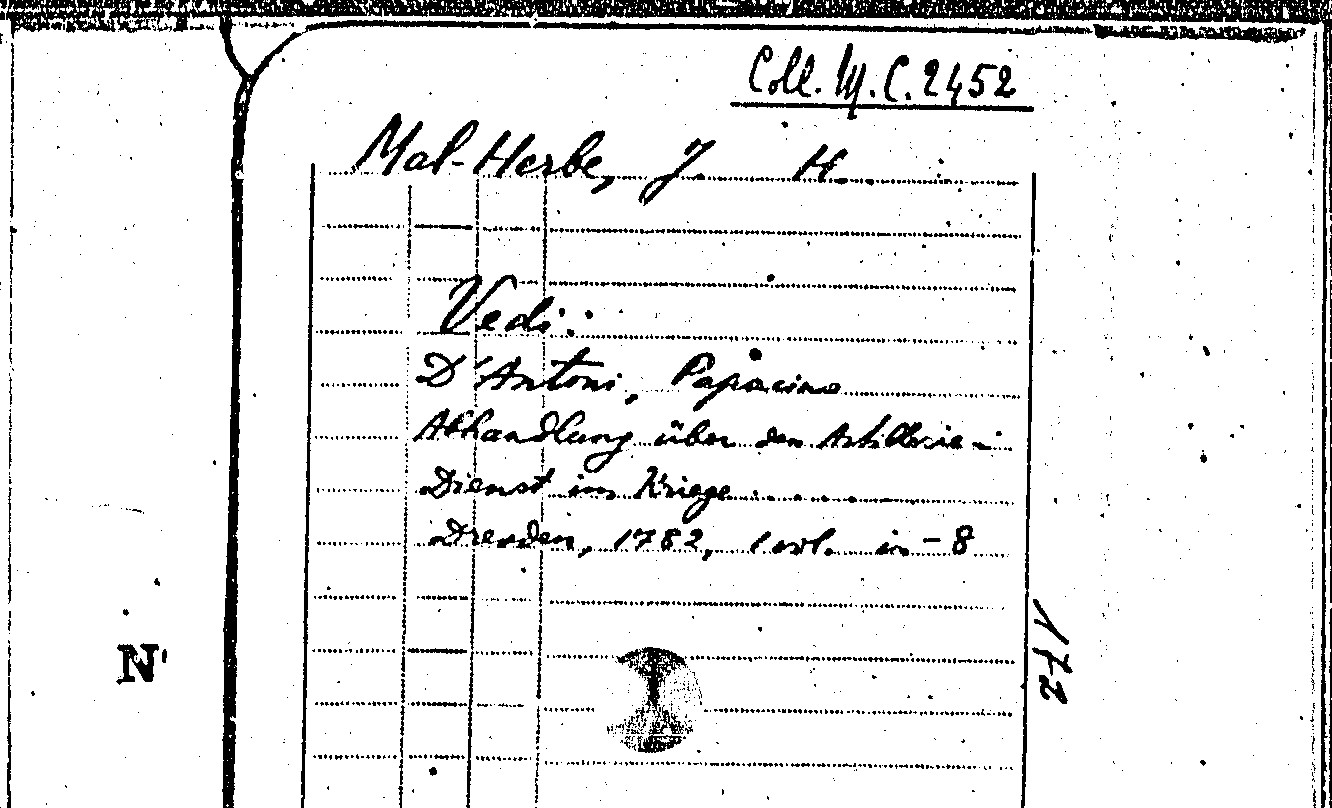 Coll. M. C. 2452
Mal-Herbe, J. H.
Vedi:
D'Antoni, Papacino
Abhandlung über den Artillerie-
Dienst im Kriege . . . . .
Dresden, 1782, 1 vol. in-8
172
N'